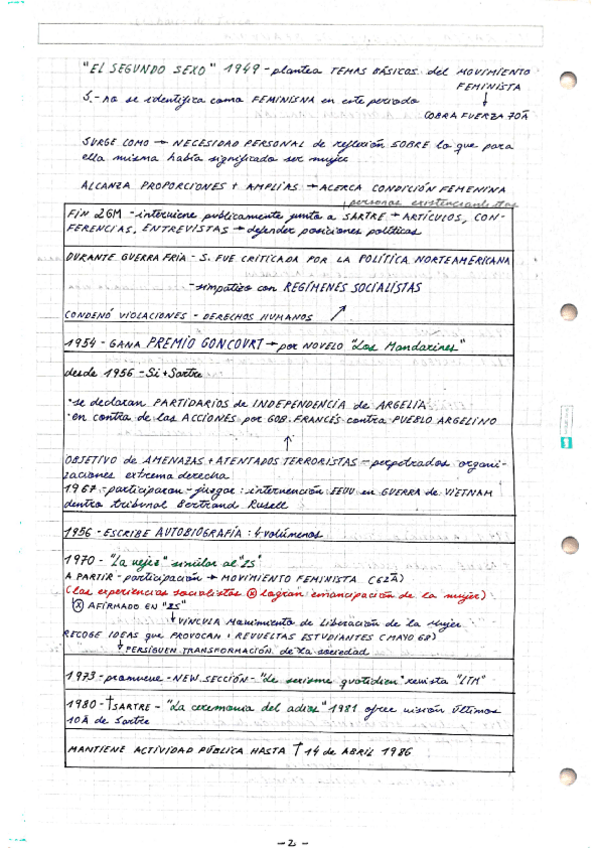 "EL SEGUNDO SEXO" 1949 - plantea TEMAS BÁSICOS del MOVIMIENTO
FEMINISTA
S. - no se identifica como FEMINISNA en este periodo
↓
COBRA FUERZA 70Ā
SURGE COMO → NECESIDAD PERSONAL de reflexión SOBRE lo que para
ella misma había significado ser mujer
ALCANZA PROPORCIONES + AMPLIAS → ACERCA CONDICIÓN FEMENINA
FIN 2GM - interviene publicamente junto a SARTRE → ARTÍCULOS, CON-
FERENCIAS, ENTREVISTAS → defender posiciones políticas
DURANTE GUERRA FRIA - S. FUE CRITICADA POR LA POLÍTICA NORTEAMERICANA
- simpatizo con REGÍMENES SOCIALISTAS
CONDENÓ VIOLACIONES - DERECHOS HUMANOS ↗
1954 - GANA PREMIO GONCOURT → por NOVELO "Los Mandarines"
desde 1956 - Si + Sartre
• se declaran PARTIDARIOS de INDEPENDENCIA de ARGELIA
• en contra de las ACCIONES por GOB. FRANCÉS contra PUEBLO ARGELINO
↑
OBJETIVO de AMENAZAS + ATENTADOS TERRORISTAS - perpetrados organi-
zaciones extrema derecha
1967 - participaron - juzgar : intervención EEUU en GUERRA de VIETNAM
dentro tribunal Bertrand Rusell
1956 - ESCRIBE AUTOBIOGRAFÍA : 4 volúmenos
1970 - "La vejez" similar al "2S"
A PARTIR - participación → MOVIMIENTO FEMINISTA
(las experiencias socialistas ⓧ logran emancipación de la mujer)
ⓧ AFIRMADO EN "2S"
↓ VINCULA Movimiento de Liberación de la Mujer
RECOGE IDEAS que PROVOCAN + REVUELTAS ESTUDIANTES (MAYO 68)
↓ PERSIGUEN TRANSFORMACIÓN de la sociedad
1973 - promueve - NEW SECCIÓN - "Le sexisme quotidien" revista "LTM"
1980 - † SARTRE - "La ceremonia del adios" 1981 ofrec visión últimos
10Ā de Sartre
MANTIENE ACTIVIDAD PÚBLICA HASTA † 14 de ABRIL 1986
- 2 -